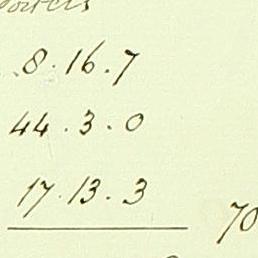 8.16.7
44.3.0
17.13.3
70